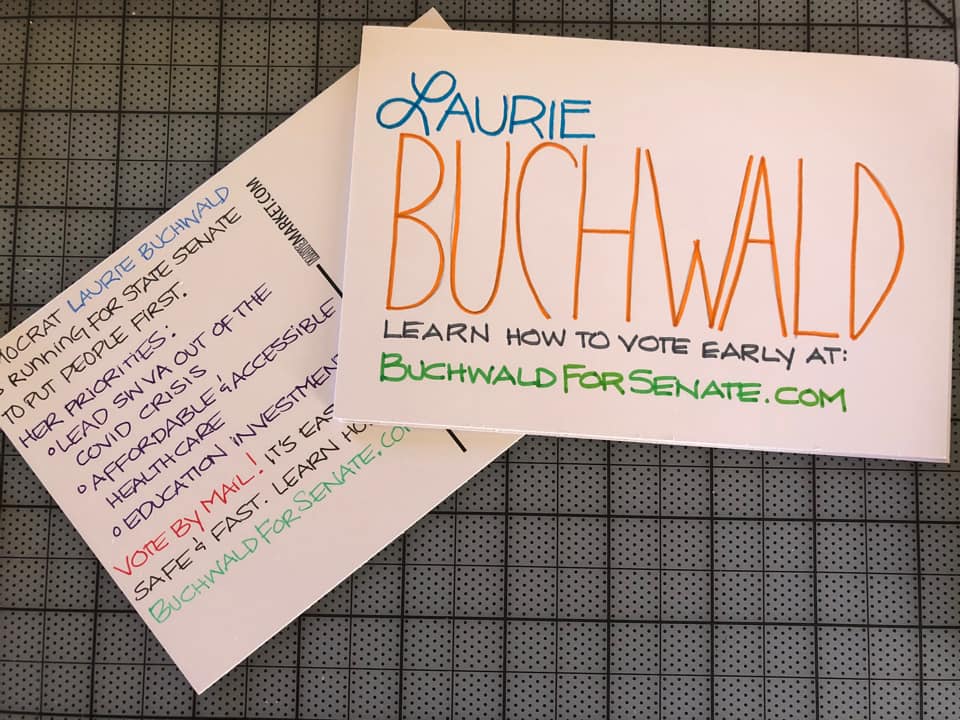 LAURIE
BUCHWALD
LEARN HOW TO VOTE EARLY AT:
BUCHWALDFORSENATE.COM
MOCRAT LAURIE BUCHWALD
RUNNING FOR STATE SENATE
TO PUT PEOPLE FIRST.
HER PRIORITIES:
LEAD SW VA OUT OF THE
COVID CRISIS
AFFORDABLE & ACCESSIBLE
HEALTHCARE
EDUCATION INVESTMEN
VOTE BY MAIL! IT'S EAS
SAFE & FAST. LEARN HO
BUCHWALDFORSENATE.CO
MARKET.COM